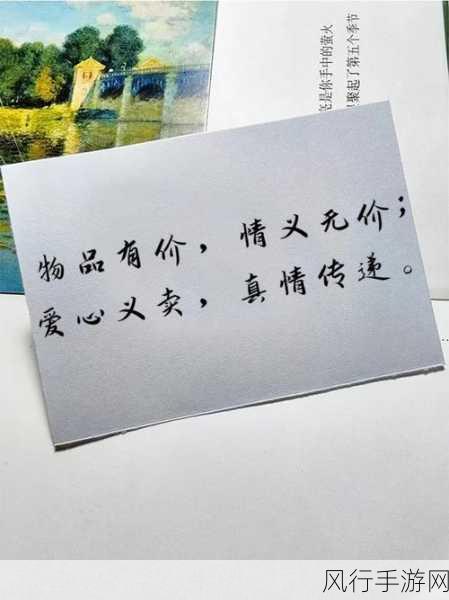 是你手中的萤火
聚起了第五个季节
物品有价，情义无价；
爱心义卖，真情传递。
风行手游网